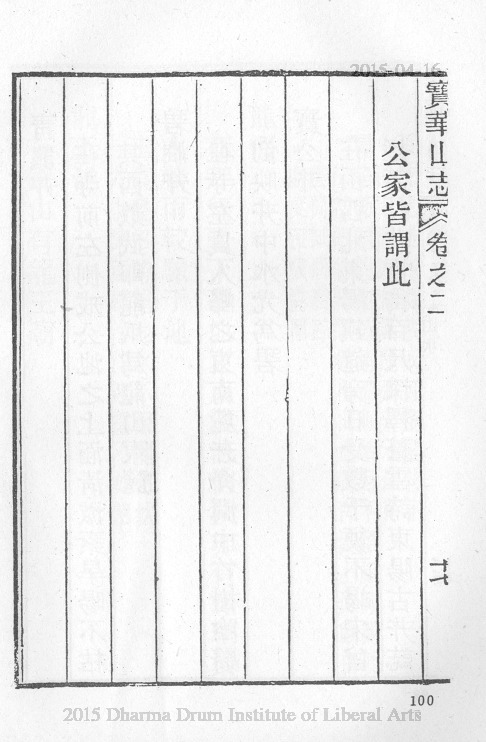 2015-04-16
寶華山志
卷之二
十七
公家皆謂此
100
2015 Dharma Drum Institute of Liberal Arts